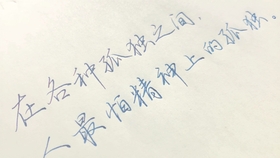 在各种孤独之间，
人最怕精神上的孤独